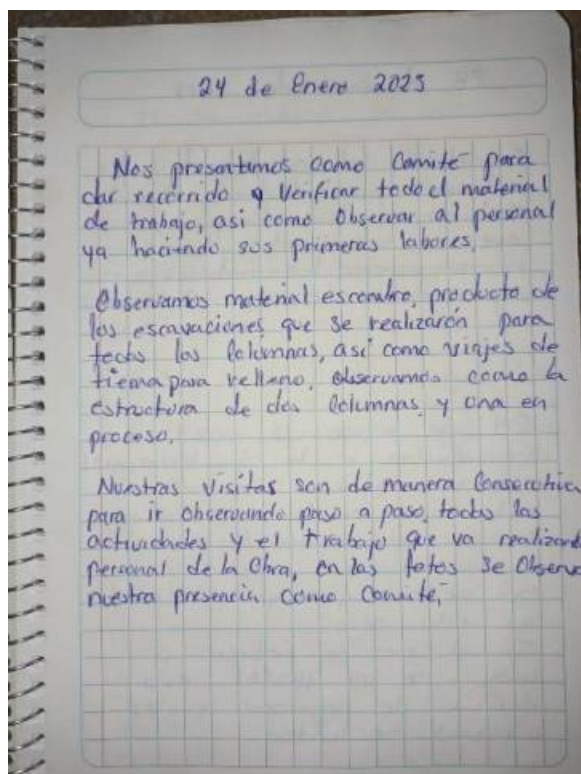 24 de Enero 2025
Nos presentamos como Comité para
dar recorrido y Verificar todo el material
de trabajo, asi como Observar al personal
ya haciendo sus primeras labores.
Observamos material escombro, producto de
las escavaciones que se realizarón para
todas las Columnas, así como viajes de
tierra para relleno, observamos como la
estructura de dos Columnas y una en
proceso.
Nuestras Visitas son de manera Consecutiva
para ir observando paso a paso, todas las
actividades y el trabajo que va realizando
personal de la Obra, en las fotos se Observa
nuestra presencia como Comité.